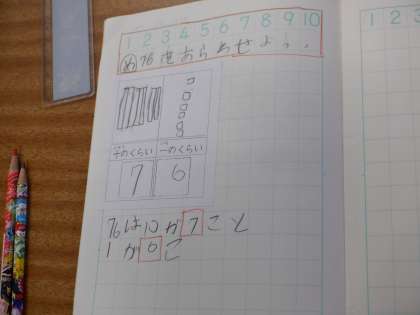 1 2 3 4 5 6 7 8 9 10
め 76をあらわせよう。
十のくらい 一のくらい
7 6
76は10が7こと
1が6こ
1 2 3